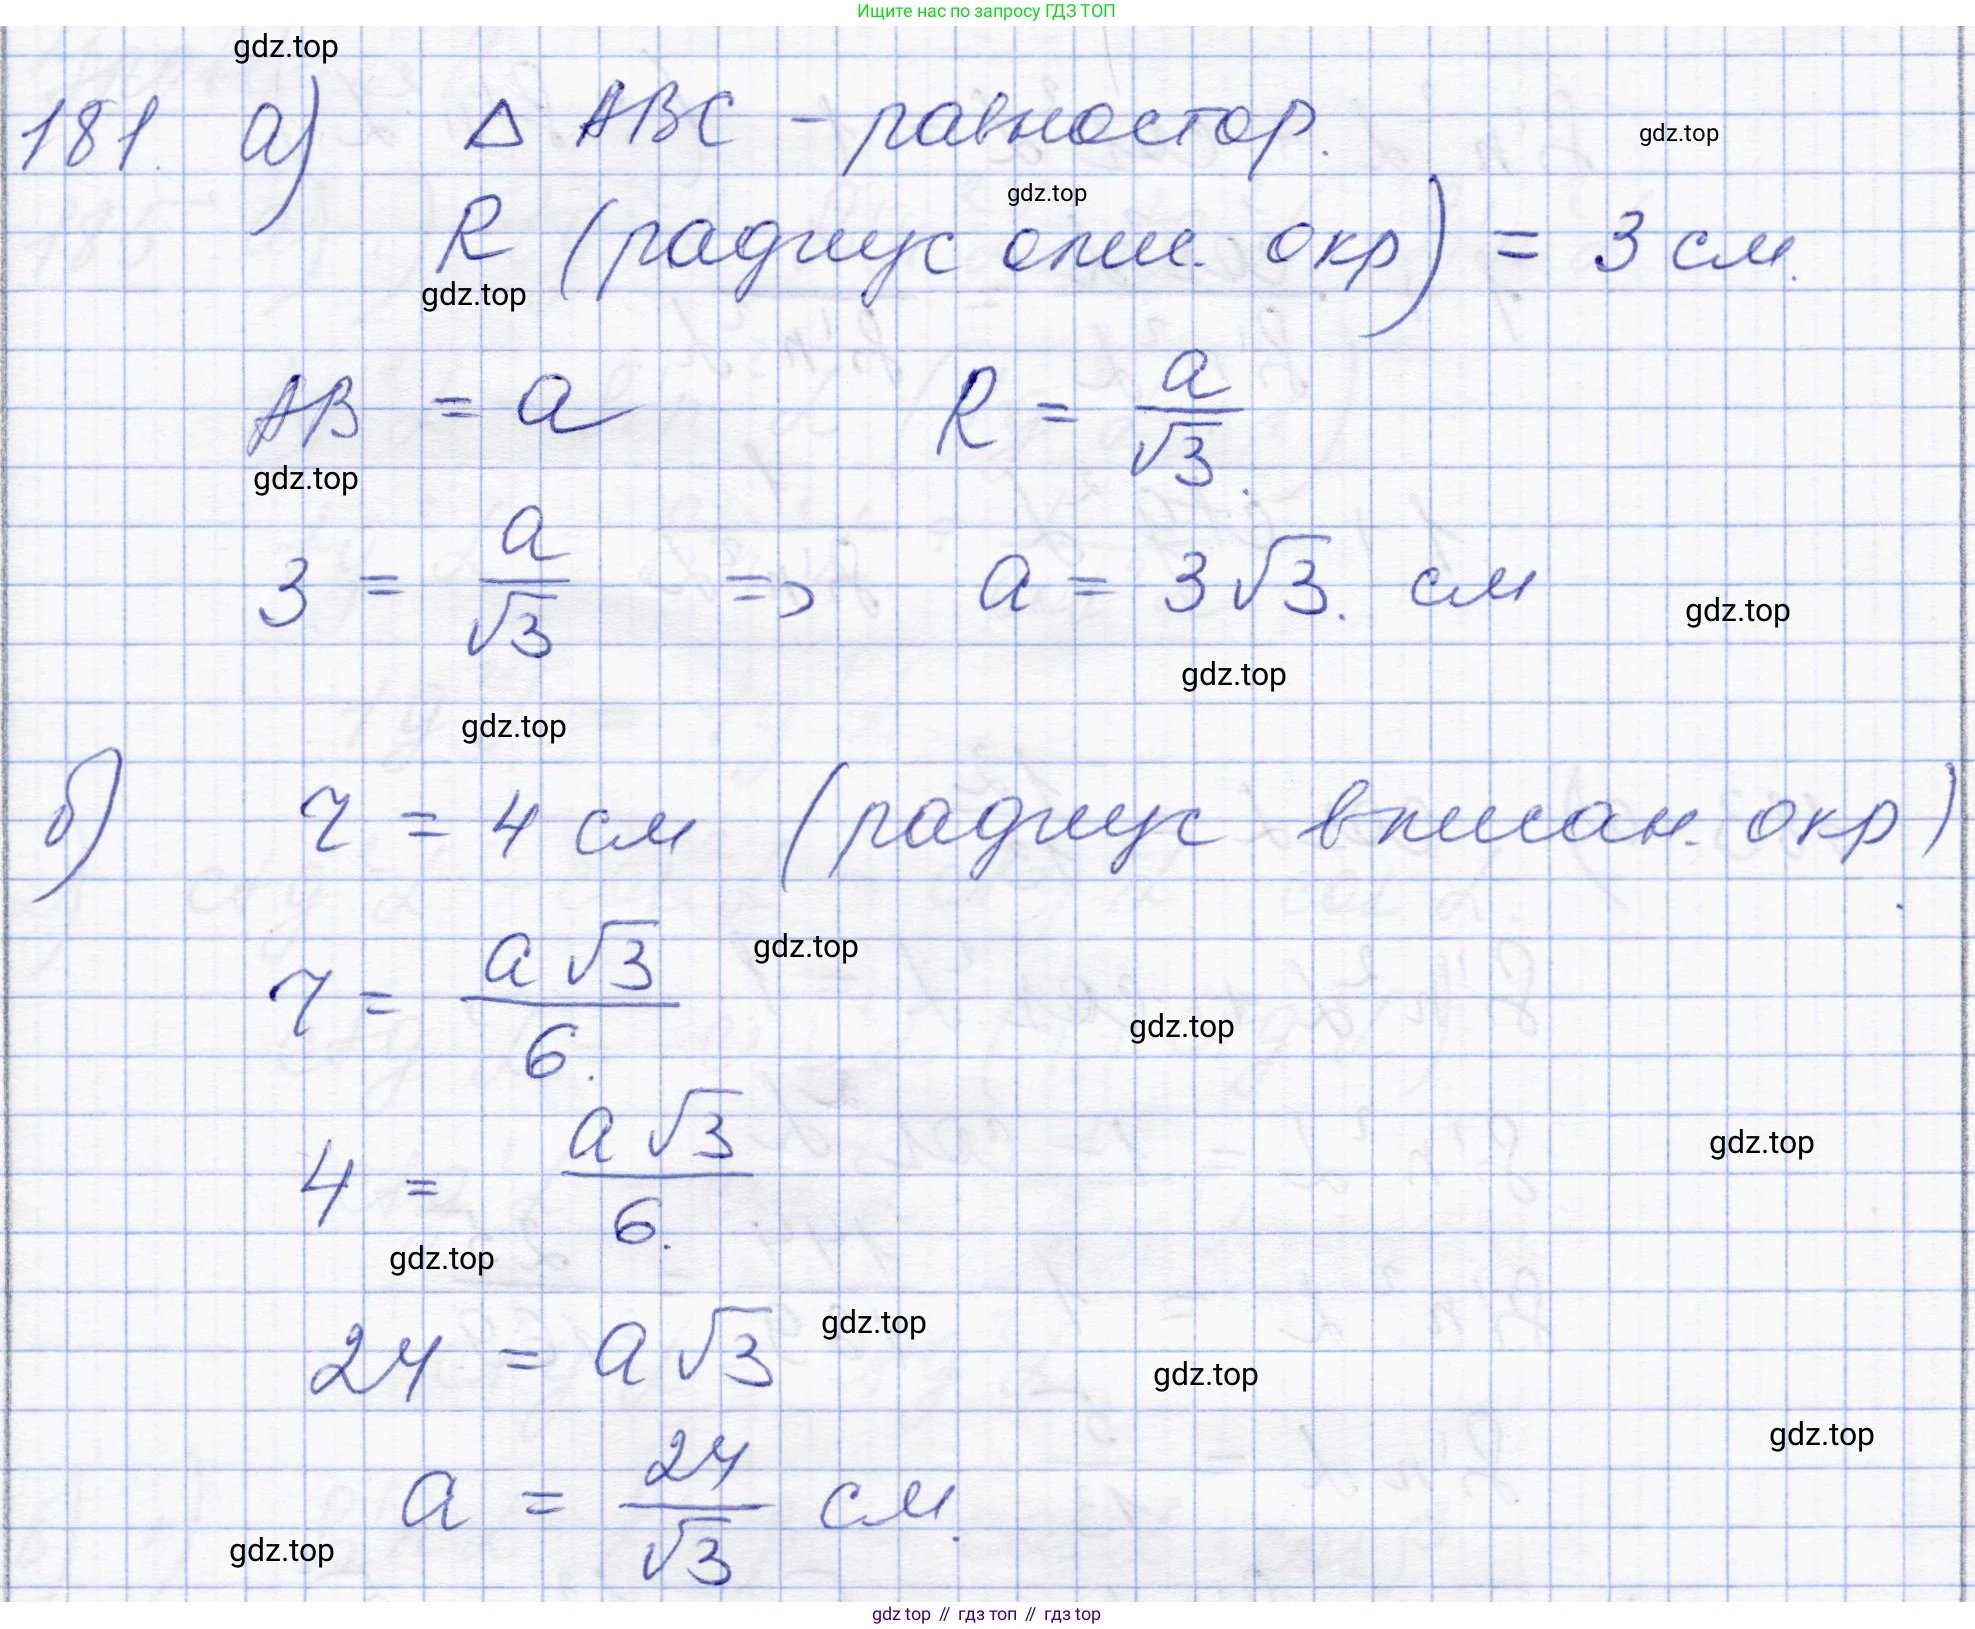 Ищите нас по запросу ГДЗ ТОП
gdz.top
181. а) Δ ABC - равностор.
gdz.top
gdz.top
R (радиус опис. окр) = 3 см.
gdz.top
AB = a R = a/√3.
gdz.top
3 = a/√3 => a = 3√3. см
gdz.top
gdz.top
gdz.top
б) r = 4 см (радиус вписан. окр).
gdz.top
r = a√3/6.
gdz.top
4 = a√3/6.
gdz.top
gdz.top
24 = a√3
gdz.top
gdz.top
gdz.top
a = 24/√3 см.
gdz.top
gdz top // гдз топ // гдз top